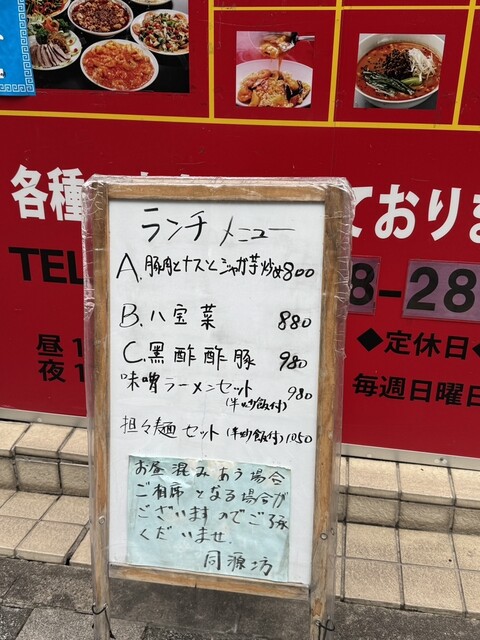 各種
ております
TEL
8-28
昼1
夜1
◆定休日◆
毎週日曜日
ランチメニュー
A.豚肉とナスとジャガ芋炒め800
B.八宝菜 880
C.黒酢酢豚 980
味噌ラーメンセット
(半炒飯付) 980
担々麺セット(半炒飯付)1050
お昼混みあう場合
ご相席となる場合が
ございますのでご了承
くだいませ.
同源坊